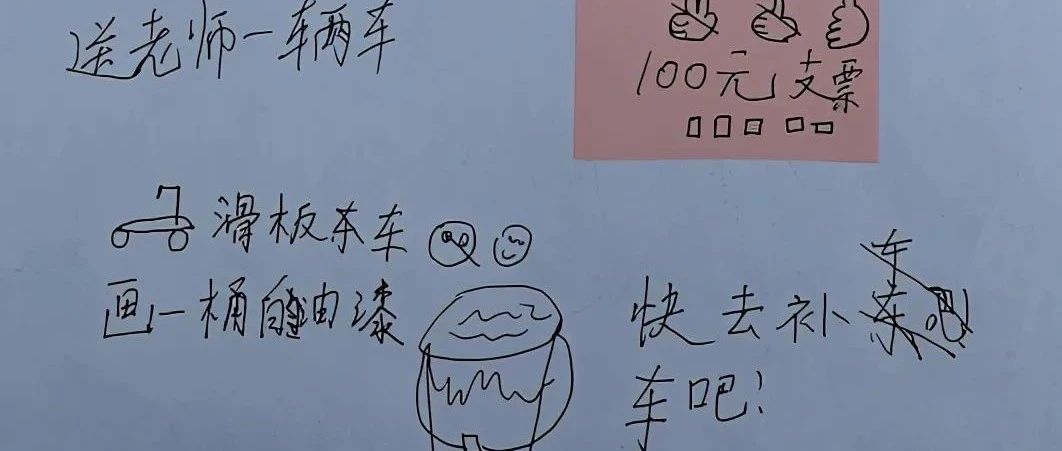 送老师一辆车
100元支票
滑板车
画一桶自油漆
快去补车吧
车吧！